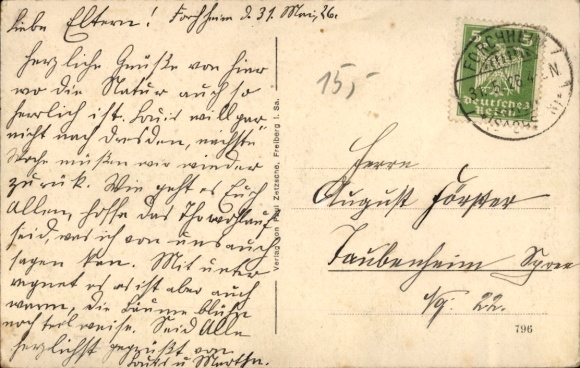 Liebe Eltern! Forchheim d. 31. Mai, 26.
Herzliche Grüße von hier
wo die Natur auch so
herrlich ist. Louis will gar
nicht nach Dresden, nächste
Woche müßen wir wieder
zurück. Wie geht es Euch
Allen, hoffe das Ihr wohlauf
seid, was ich von uns auch
sagen kan. Mit unter
regnet es es ist aber auch
warm, die Bäume blühe
noch teilweise. Seid Alle
herzlichst gegrüßt von
Louis u Martha.
Verlag von Paul Zetzsche, Freiberg i. Sa.
15,-
5 5
Deutsches
Reich
FORCHHEIM
Herrn
August Förster
Taubenheim Spree
No: 22.
796